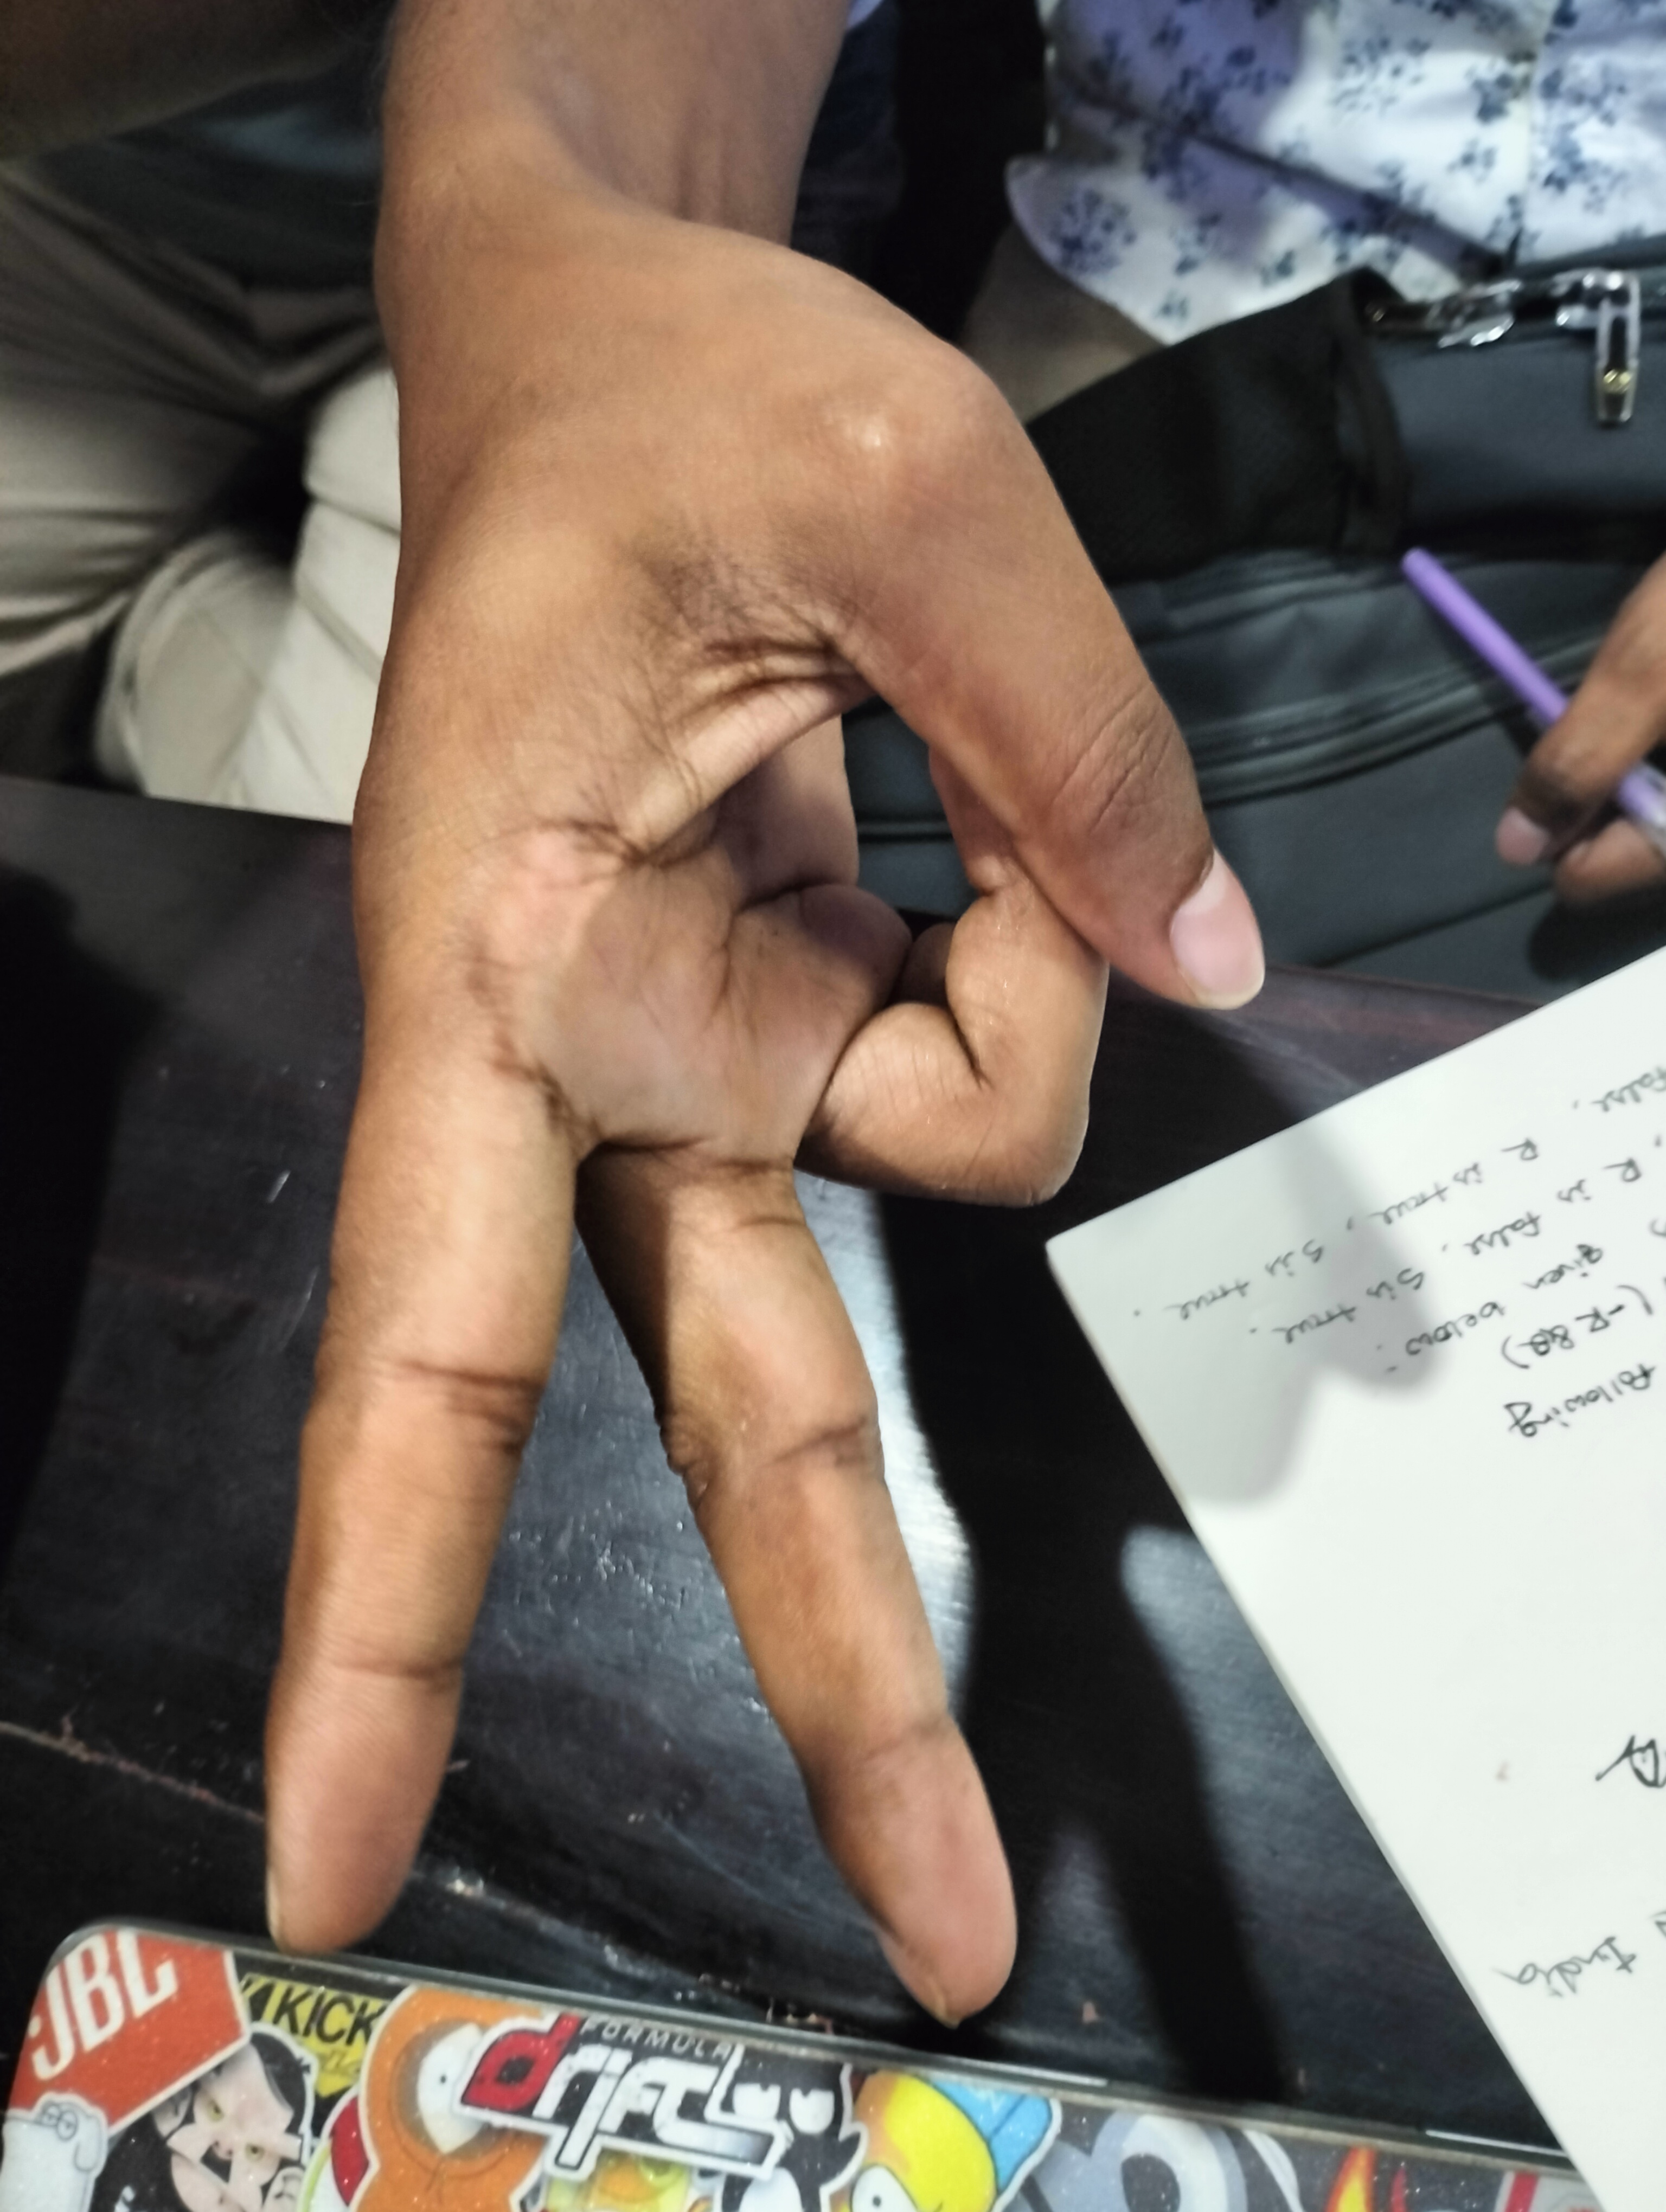 JBL
KICK
FORMULA
drift
India
following
(-R &Q)
given below:
R is false, S is true.
R is true, S is true.
false.